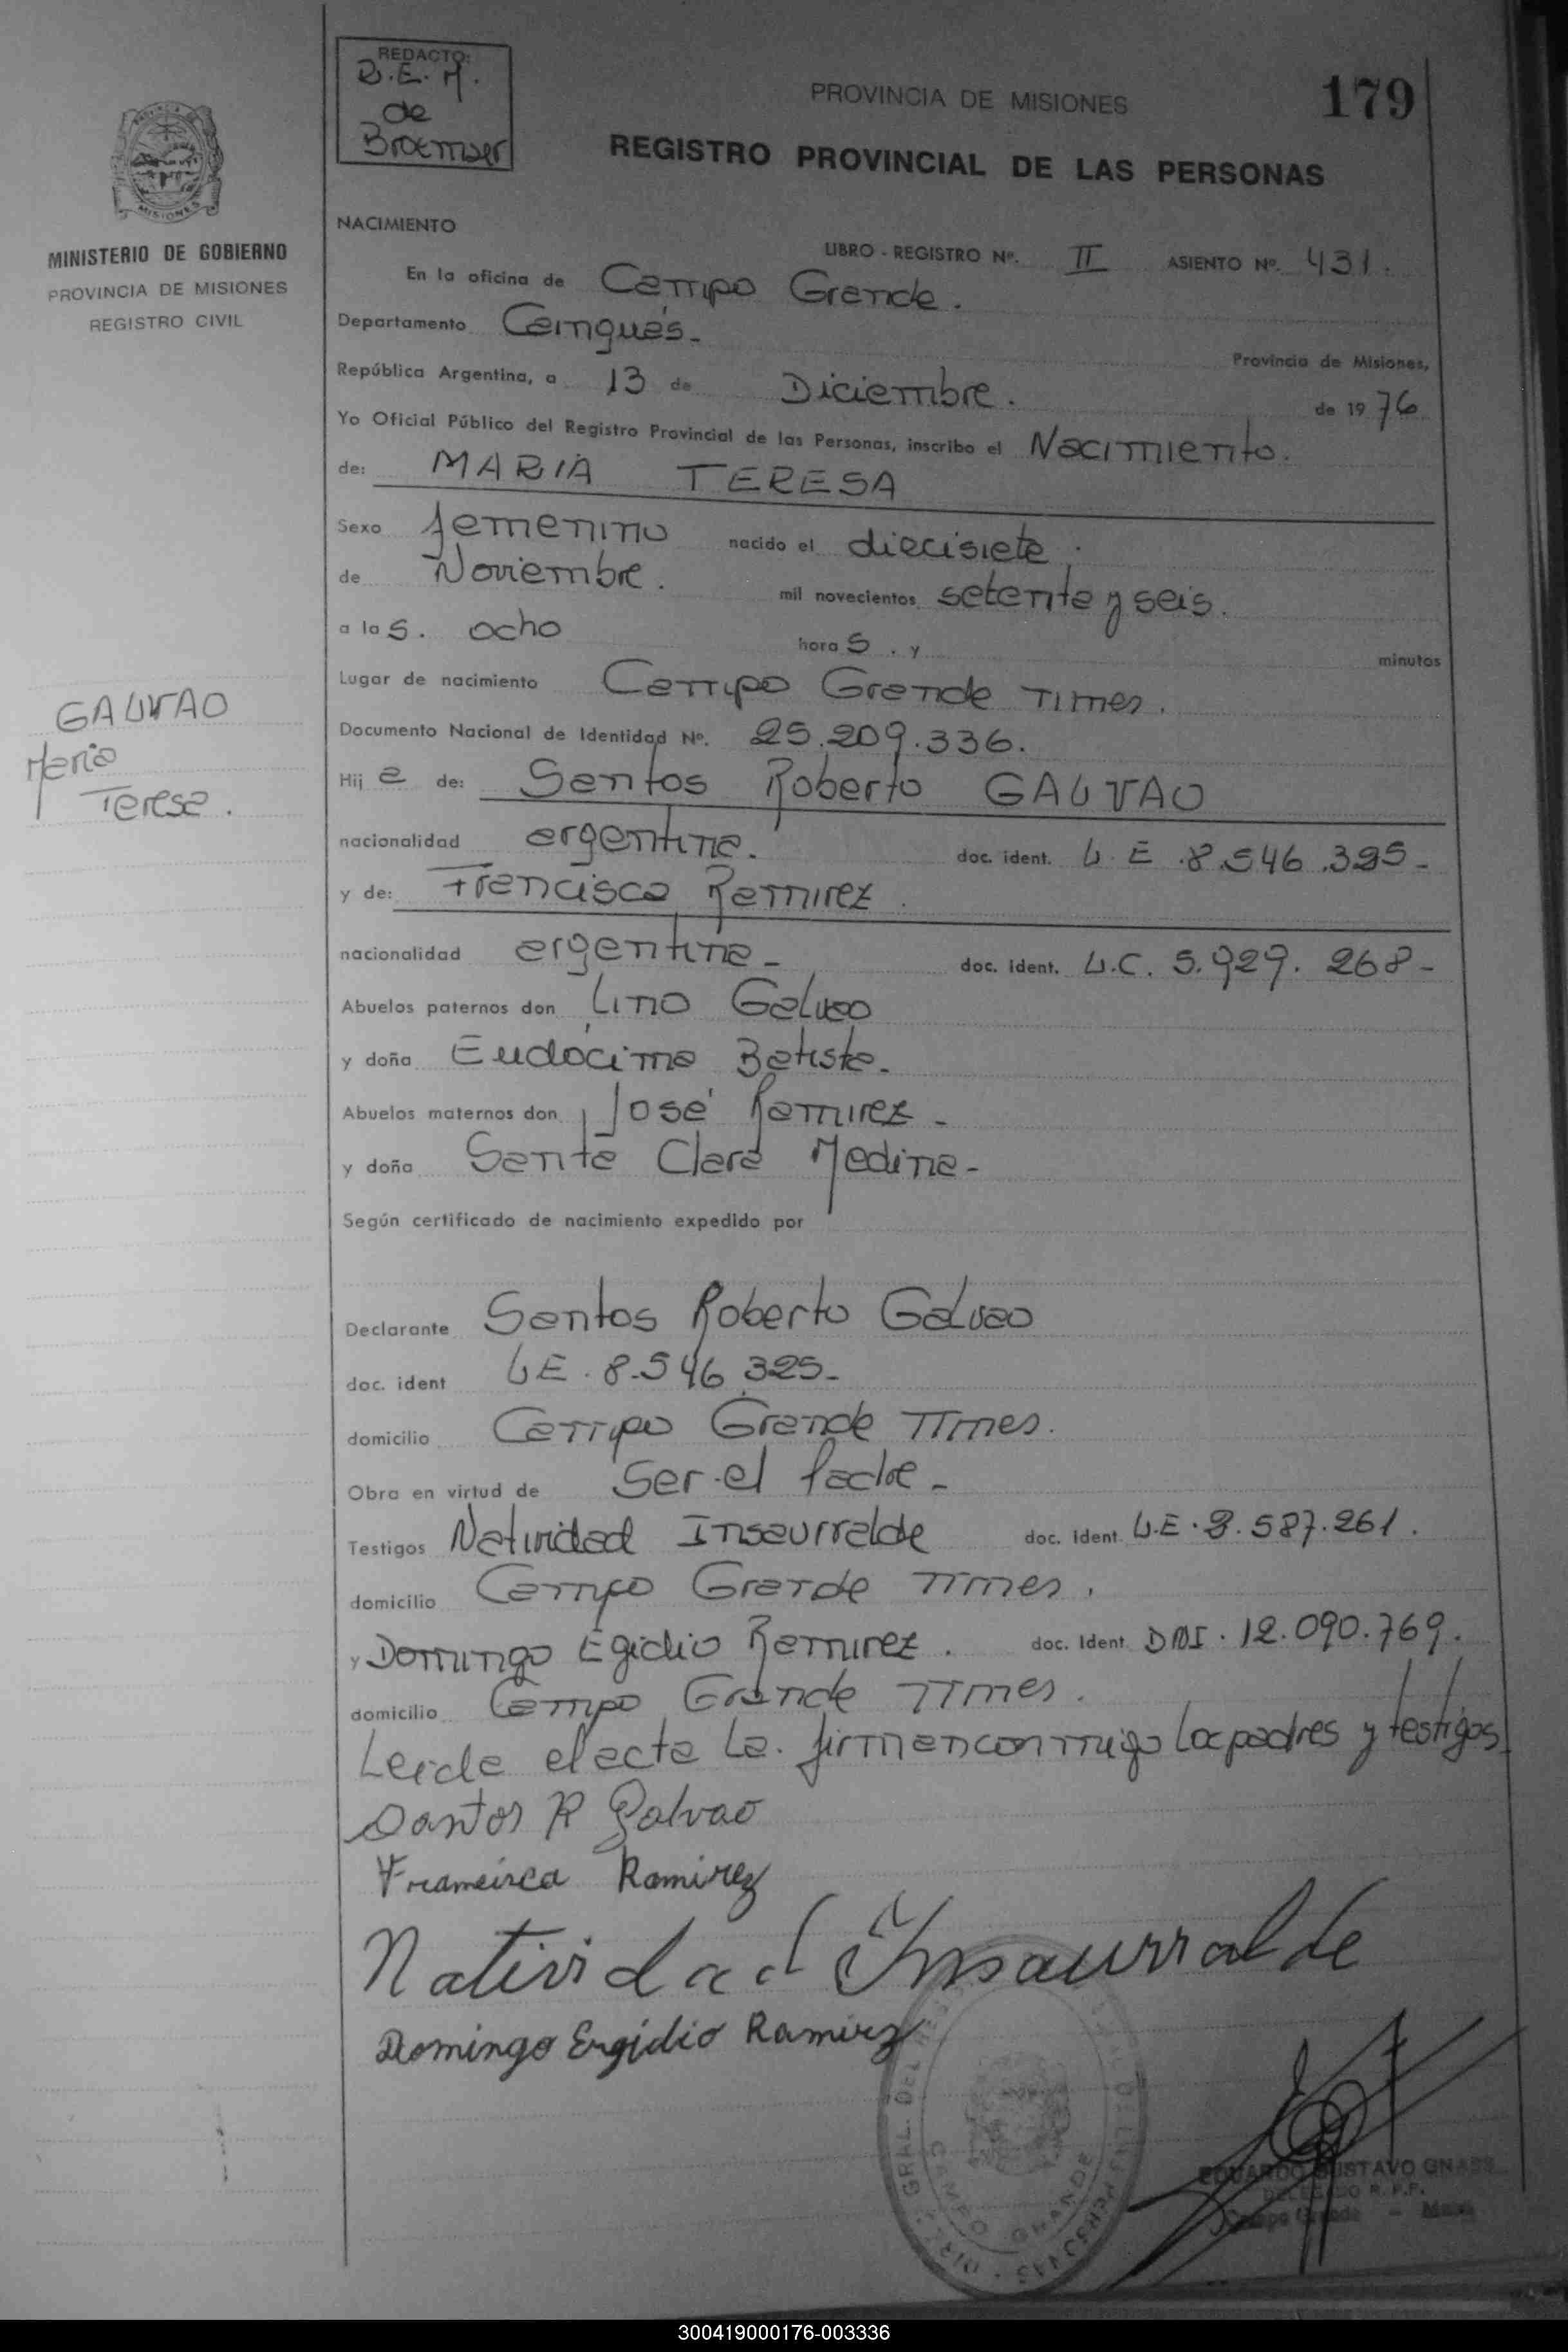 REDACTO:
R.E.M.
de
Broemser
PROVINCIA DE MISIONES
179
REGISTRO PROVINCIAL DE LAS PERSONAS
MISIONES
MINISTERIO DE GOBIERNO
PROVINCIA DE MISIONES
REGISTRO CIVIL
NACIMIENTO
LIBRO - REGISTRO Nº. II ASIENTO Nº. 431.
En la oficina de Campo Grande.
Departamento Cainguás-
Provincia de Misiones,
República Argentina, a 13 de Diciembre. de 1976
Yo Oficial Público del Registro Provincial de las Personas, inscribo el Nacimiento.
de: MARIA TERESA
Sexo femenino nacido el diecisiete.
de Noviembre. mil novecientos setenta y seis.
a las. ocho horas. y minutos
Lugar de nacimiento Campo Grande Mnes.
GALVAO
Maria
Teresa.
Documento Nacional de Identidad Nº. 25.209.336.
Hija de: Santos Roberto GALVAO
nacionalidad argentina. doc. ident. L.E.8.546.325-
y de: Francisca Ramirez.
nacionalidad argentina- doc. ident. L.C. 5.929.268-
Abuelos paternos don Lino Galvao
y doña Eudócima Batista-
Abuelos maternos don José Ramirez-
y doña Santa Clara Medina-
Según certificado de nacimiento expedido por
Declarante Santos Roberto Galvao
doc. ident LE.8.546.325-
domicilio Campo Grande Mnes.
Obra en virtud de Ser el Padre-
Testigos Natividad Insaurralde doc. ident. L.E.8.587.261.
domicilio Campo Grande Mnes.
y Domingo Egidio Ramirez. doc. Ident DNI.12.090.769.
domicilio Campo Grande Mnes.
Leida el acta la firman conmigo los padres y testigos
Santos R Galvao
Francisca Ramirez
Natividad Insaurralde
Domingo Ergidio Ramirez
CAMPO GRANDE
EDUARDO GUSTAVO GNASS
DELEGADO R.P.P.
Campo Grande - Mnes
300419000176-003336